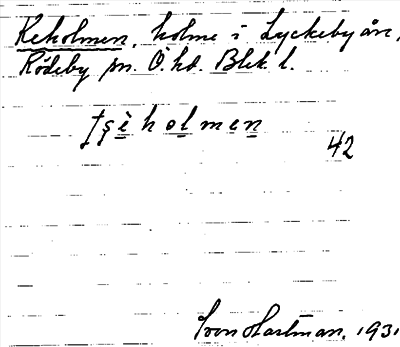 Keholmen, holme i Lyckebyån,
Rödeby sn. Ö. hd. Blek. l.
ţşèholmen
42
Sven Hartman. 1931